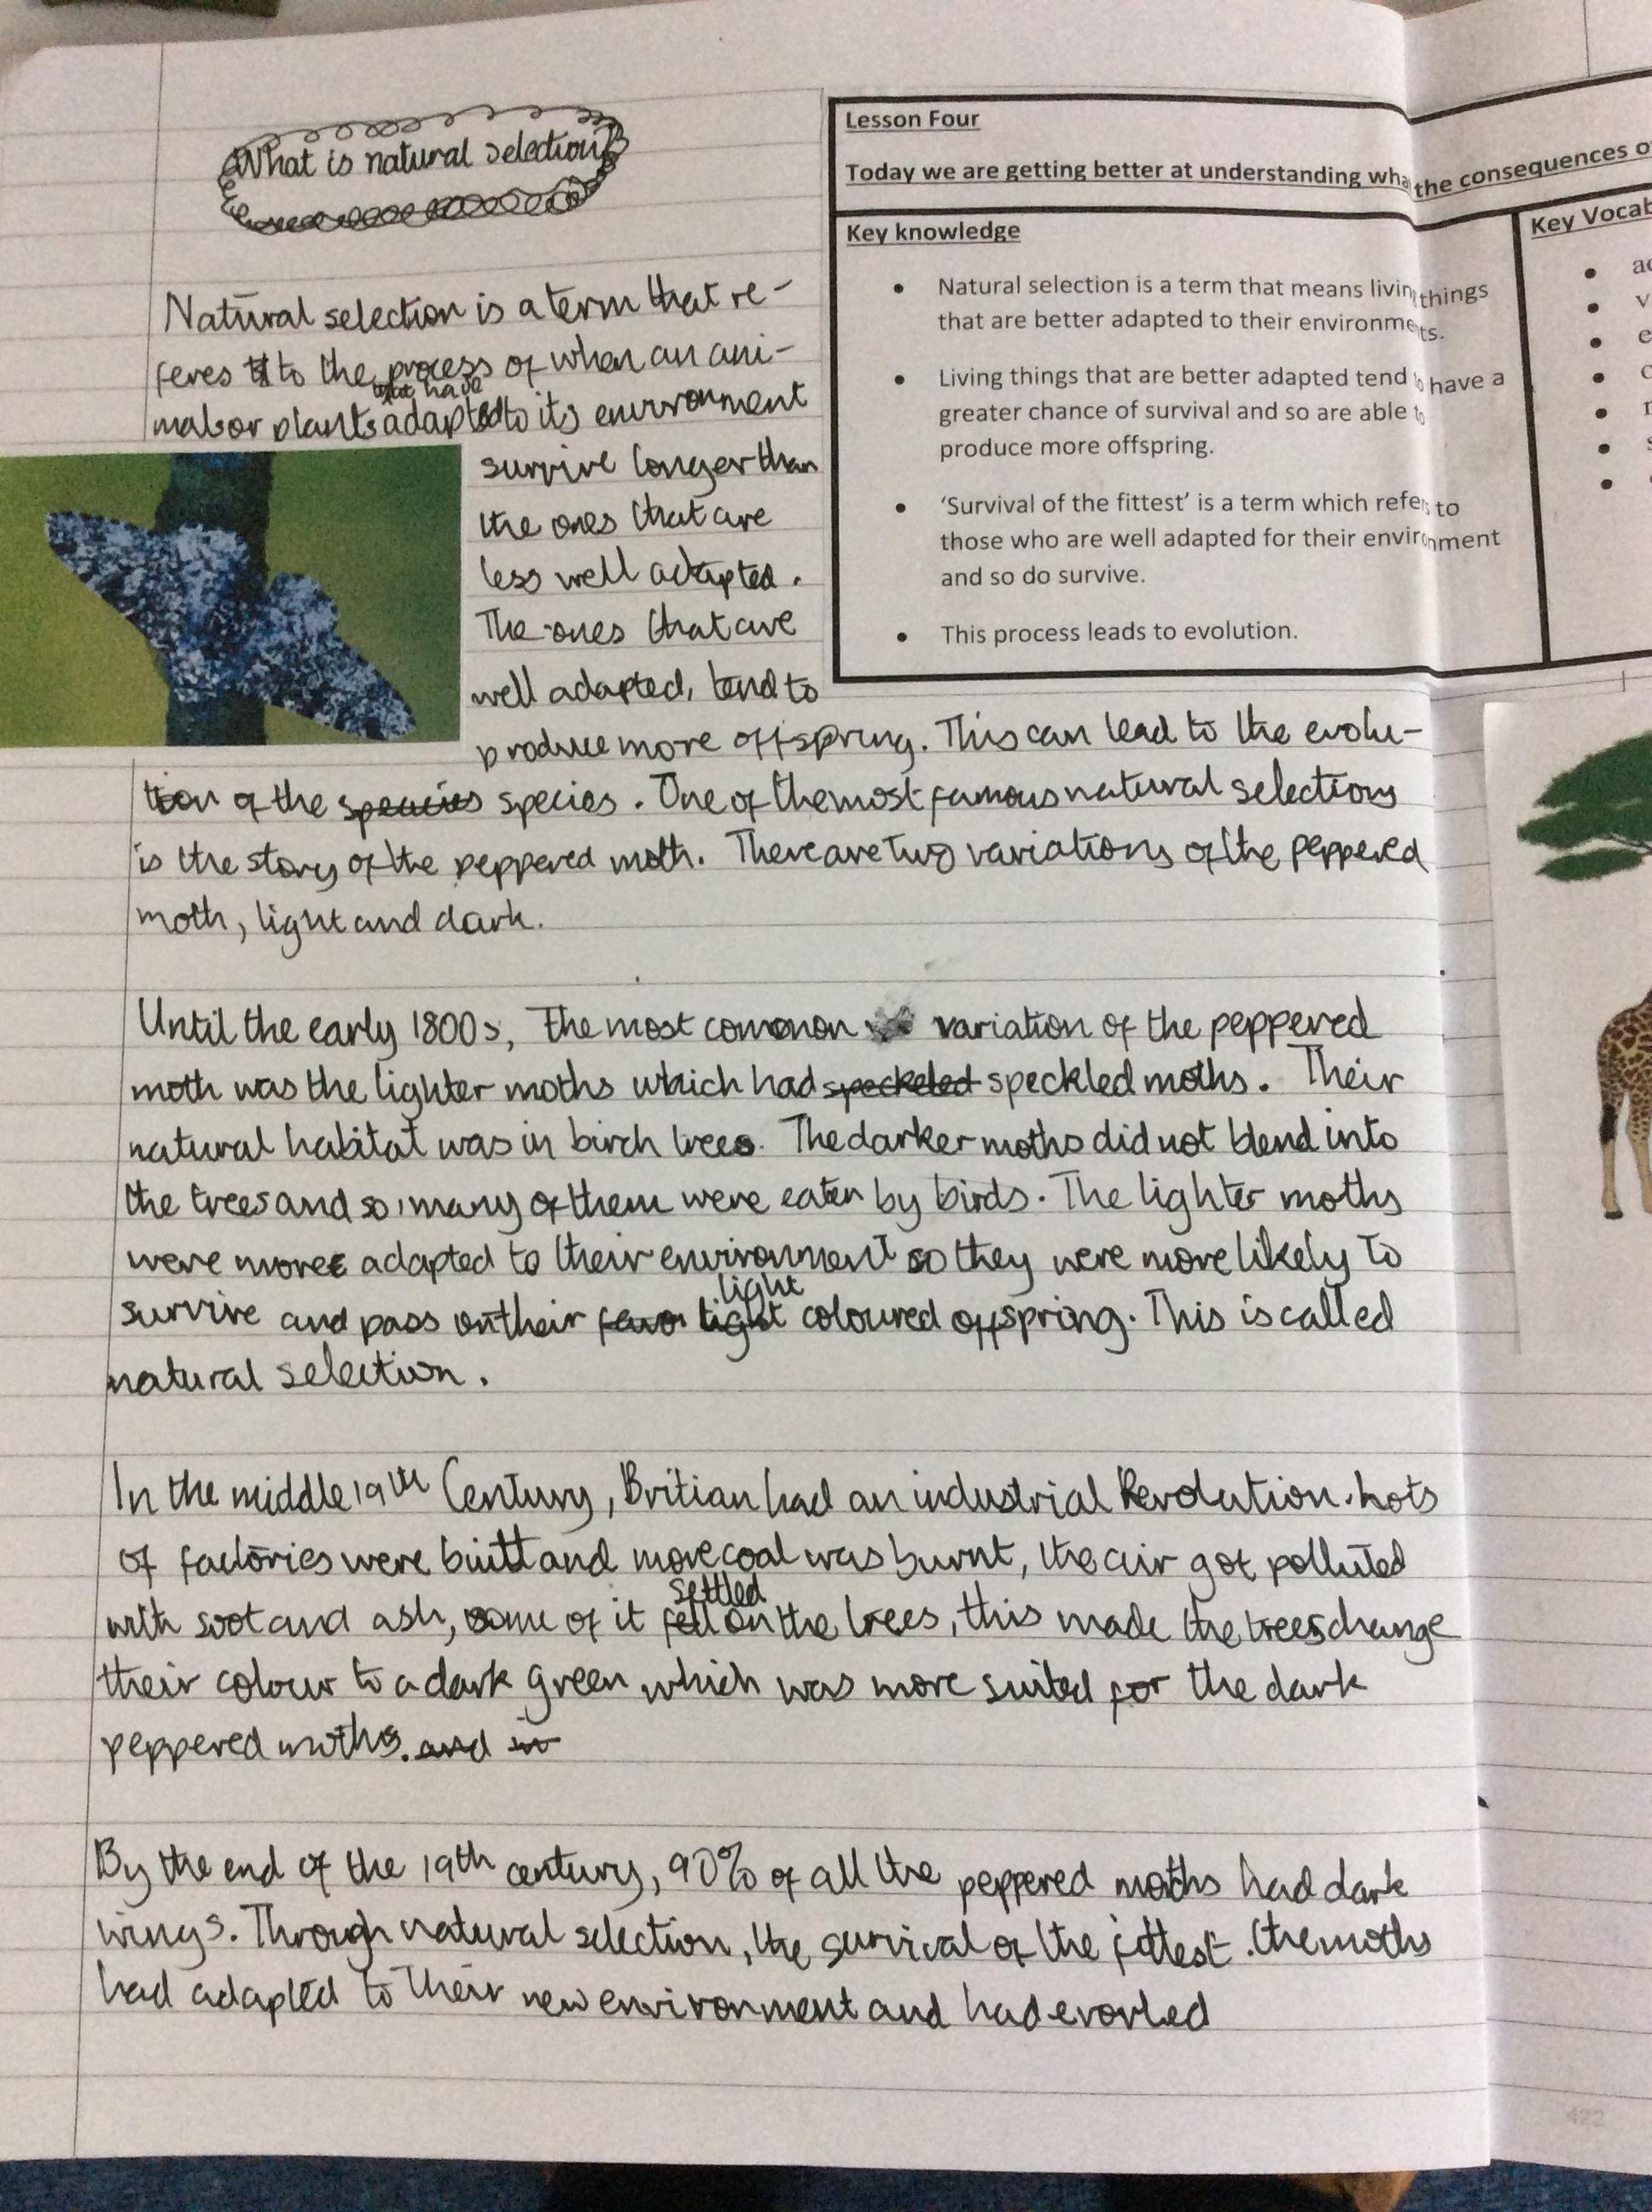 What is natural selection?
Natural selection is a term that re-
feres to the process of when an ani-
that have
mal or plants adapted to its environment
survive longer than
the ones that are
less well adapted.
The ones that are
well adapted, tend to
produce more offspring. This can lead to the evolu-
tion of the speacies species. One of the most famous natural selections
is the story of the peppered moth. There are two variations of the peppered
moth, light and dark.
Until the early 1800s, The most common variation of the peppered
moth was the lighter moths which had speckeled speckled moths. Their
natural habitat was in birch trees. The darker moths did not blend into
the trees and so, many of them were eaten by birds. The lighter moths
were more adapted to their environment so they were more likely to
light
survive and pass on their favo light coloured offspring. This is called
natural selection.
In the middle 19th Century, Britian had an industrial Revolution. Lots
of factories were built and more coal was burnt, the air got polluted
settled
with soot and ash, some of it fell on the trees, this made the trees change
their colour to a dark green which was more suited for the dark
peppered moths. and in
By the end of the 19th century, 90% of all the peppered moths had dark
wings. Through natural selection, the survival of the fittest. the moths
had adapted to their new environment and had evovled
Lesson Four
Today we are getting better at understanding wha the consequences o
Key knowledge
• Natural selection is a term that means living things
that are better adapted to their environments.
• Living things that are better adapted tend to have a
greater chance of survival and so are able to
produce more offspring.
• 'Survival of the fittest' is a term which refers to
those who are well adapted for their environment
and so do survive.
• This process leads to evolution.
Key Vocab
• ac
• v
• e
• c
• r
• s
422